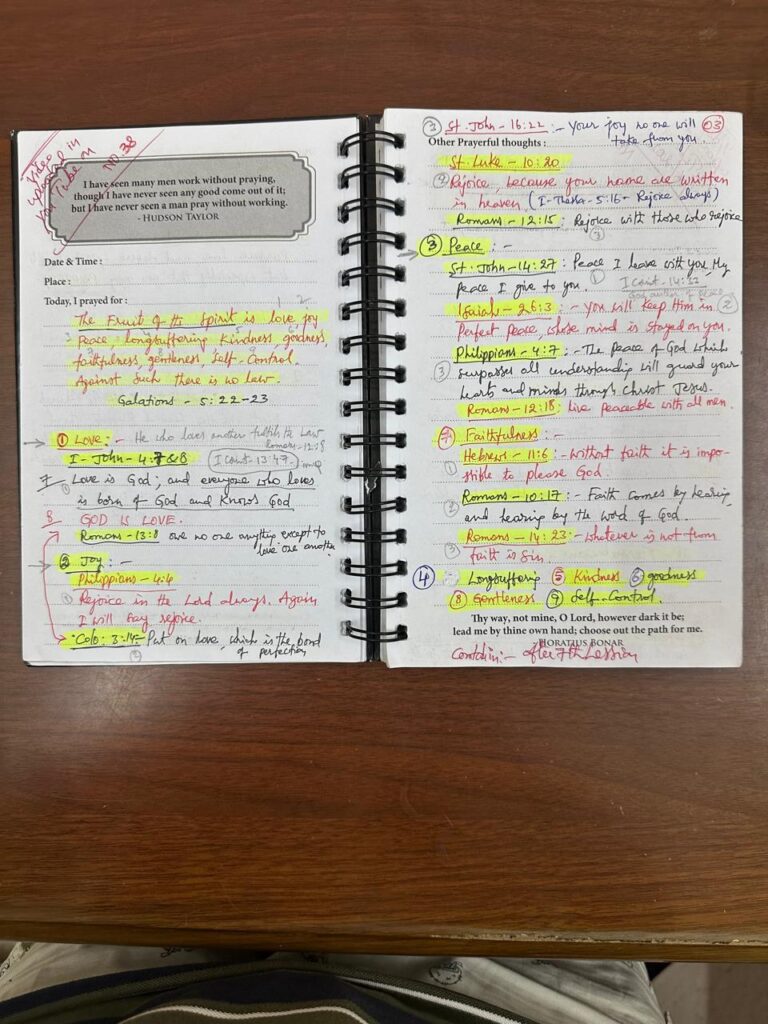 Video
uploaded in
You Tube in
NO 38
I have seen many men work without praying,
though I have never seen any good come out of it;
but I have never seen a man pray without working.
- HUDSON TAYLOR
Date & Time :
Place :
Today, I prayed for :
1 2
The Fruit of the Spirit is love, joy
Peace, Longsuffering Kindness, goodness,
faithfulness, gentleness, Self-Control.
Against Such there is no law.
Galations - 5:22-23
① Love :- He who loves another fulfills the Law
Romans-13:8
I - John - 4:7&8 (I Corit-13:4-7)
7 Love is God; and everyone who loves
is born of God and Knows God
8 GOD IS LOVE.
Romans - 13:8 owe no one anything except to
love one another
② Joy :-
Philippians - 4:4
① Rejoice in the Lord always. Again
I will say rejoice.
*Colo: 3:14- Put on love, which is the bond
of perfection
③ St. John - 16:22 :- Your joy no one will 03
take from you.
Other Prayerful thoughts :
St. Luke - 10:20
② Rejoice, because your name are written
in heaven (I - Thess - 5:16 - Rejoice always)
Romans - 12:15 : Rejoice with those who rejoice
③
③ Peace :-
St. John - 14:27 : Peace I leave with you, My
peace I give to you. ① I Corit - 14:33
Isaiah - 26:3 :- you will Keep Him in ②
Perfect peace, whose mind is stayed on you.
Philippians - 4:7 :- The peace of God which
③ surpasses all understandig will guard your
hearts and minds through Christ Jesus.
Romans - 12:18 : Live peaceable with all men.
⑦ Faithfulness :-
Hebrews - 11:6 :- without faith it is impo-
① ssible to please God.
Romans - 10:17 :- Faith comes by hearing
② and hearing by the word of God.
Romans - 14:23 :- whatever is not from
③ faith is Sin.
④ Longsuffering ⑤ Kindness ⑥ goodness
⑧ Gentleness ⑨ Self-Control.
Thy way, not mine, O Lord, however dark it be;
lead me by thine own hand; choose out the path for me.
- HORATIUS BONAR
after 7th Lession